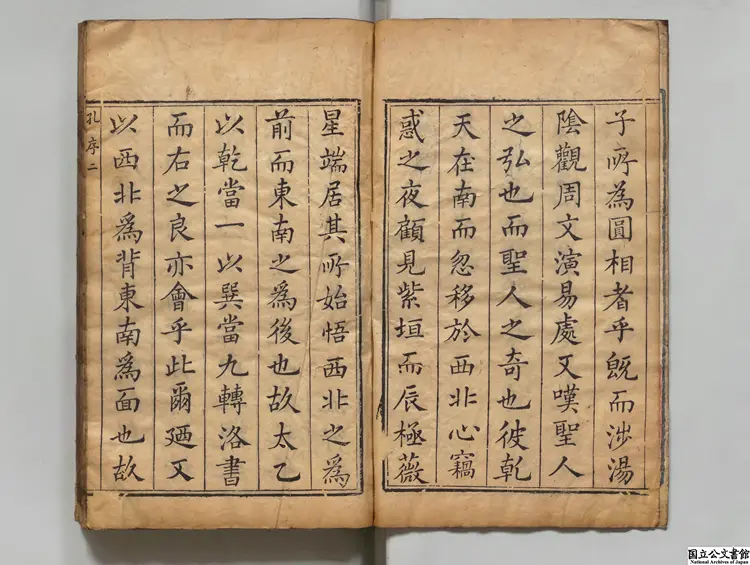 子所為圓相者乎既而涉湯
陰觀周文演易處又嘆聖人
之弘也而聖人之奇也彼乾
天在南而忽移於西北心竊
惑之夜顧見紫垣而辰極薇
星端居其所始悟西北之為
前而東南之為後也故太乙
以乾當一以巽當九轉洛書
而右之良亦會乎此爾廼又
以西北爲背東南為面也故
孔序二
国立公文書館
National Archives of Japan